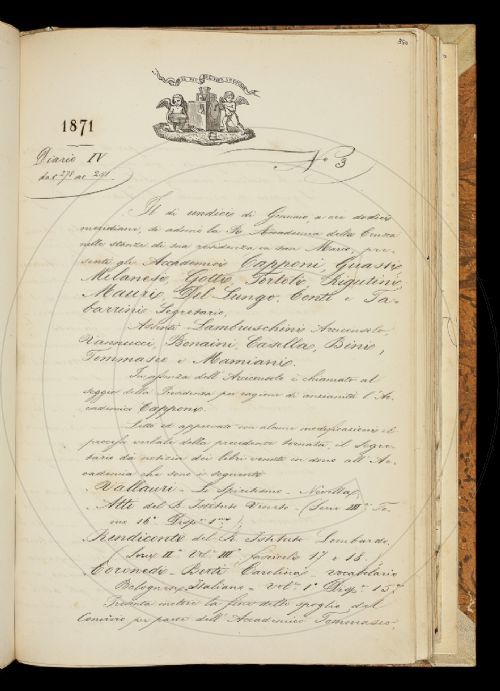 350
1871
Diario IV
N° 3
dal 278 al 281.
Il dì undici di Gennaio a ore dodici
meridiane, si adunò la R. Accademia della Crusca
nelle stanze di sua residenza in San Marco, pre-
senti gli Accademici Capponi, Guasti,
Milanesi, Gotti, Tortoli, Rigutini,
Mauri, Del Lungo, Conti e Ta-
barrini Segretario.
Assenti Lambruschini Arciconsolo,
Vannucci, Bonaini, Casella, Bini,
Tommaseo e Mamiani.
In assenza dell'Arciconsolo è chiamato al
seggio della Presidenza per ragione di anzianità l'Ac-
cademico Capponi.
Letto ed approvato con alcune modificazioni il
processo verbale della precedente tornata, il Segre-
tario dà notizia dei libri venuti in dono all'Ac-
cademia che sono i seguenti
Vallauri - Lo Spiritismo - Novella
Atti del R. Istituto Veneto - (Serie III To-
mo 16° Disp. 1ma)
Rendiconto del R. Istituto Lombardo
Serie II Vol. III fascicolo 17 e 18.
Coronedi - Berti Carolina - Vocabolario
Bolognese Italiano - Vol. 1° Disp. 15.
la fine dello spoglio del
Convivio per parte dell'Accademico Tommaseo,